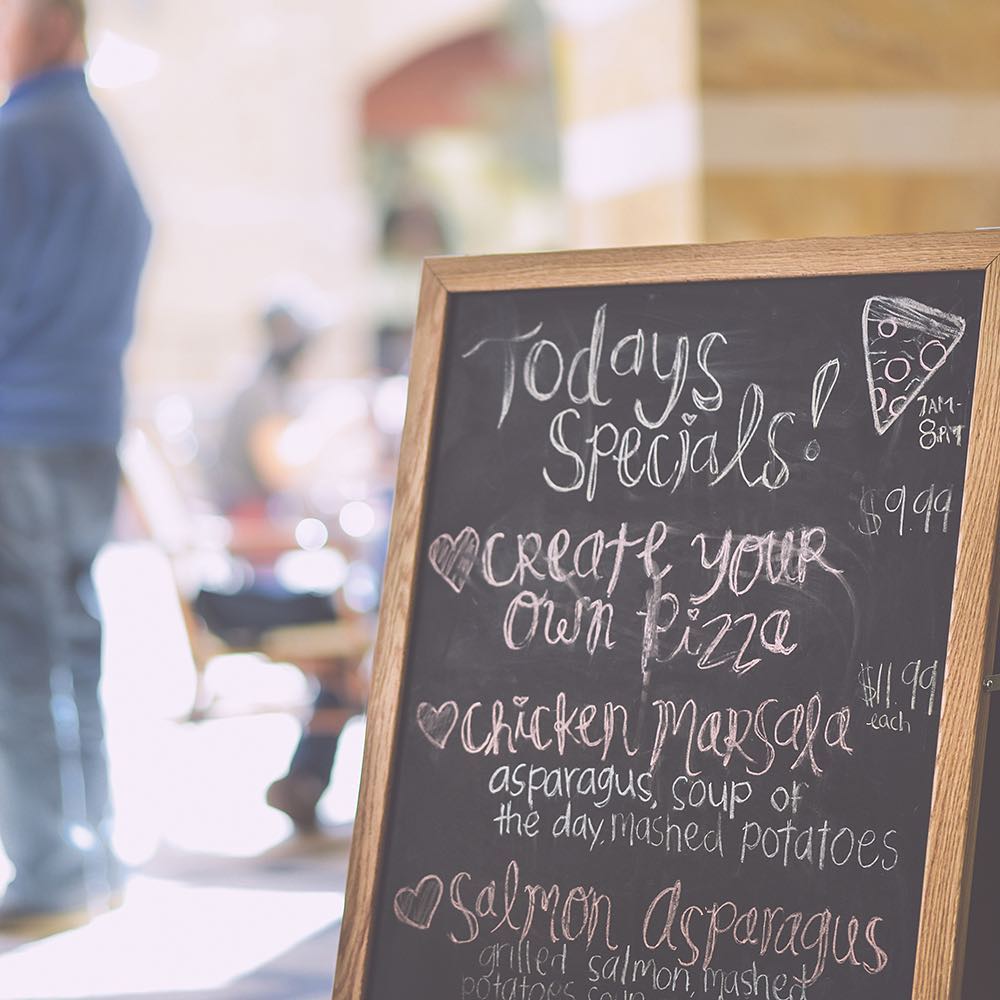 Todays
Specials!
7AM-
8PM
$9.99
create your
own pizza
$11.99
each
chicken Marsala
asparagus, soup of
the day, mashed potatoes
Salmon Asparagus
grilled salmon, mashed
potatoes soup